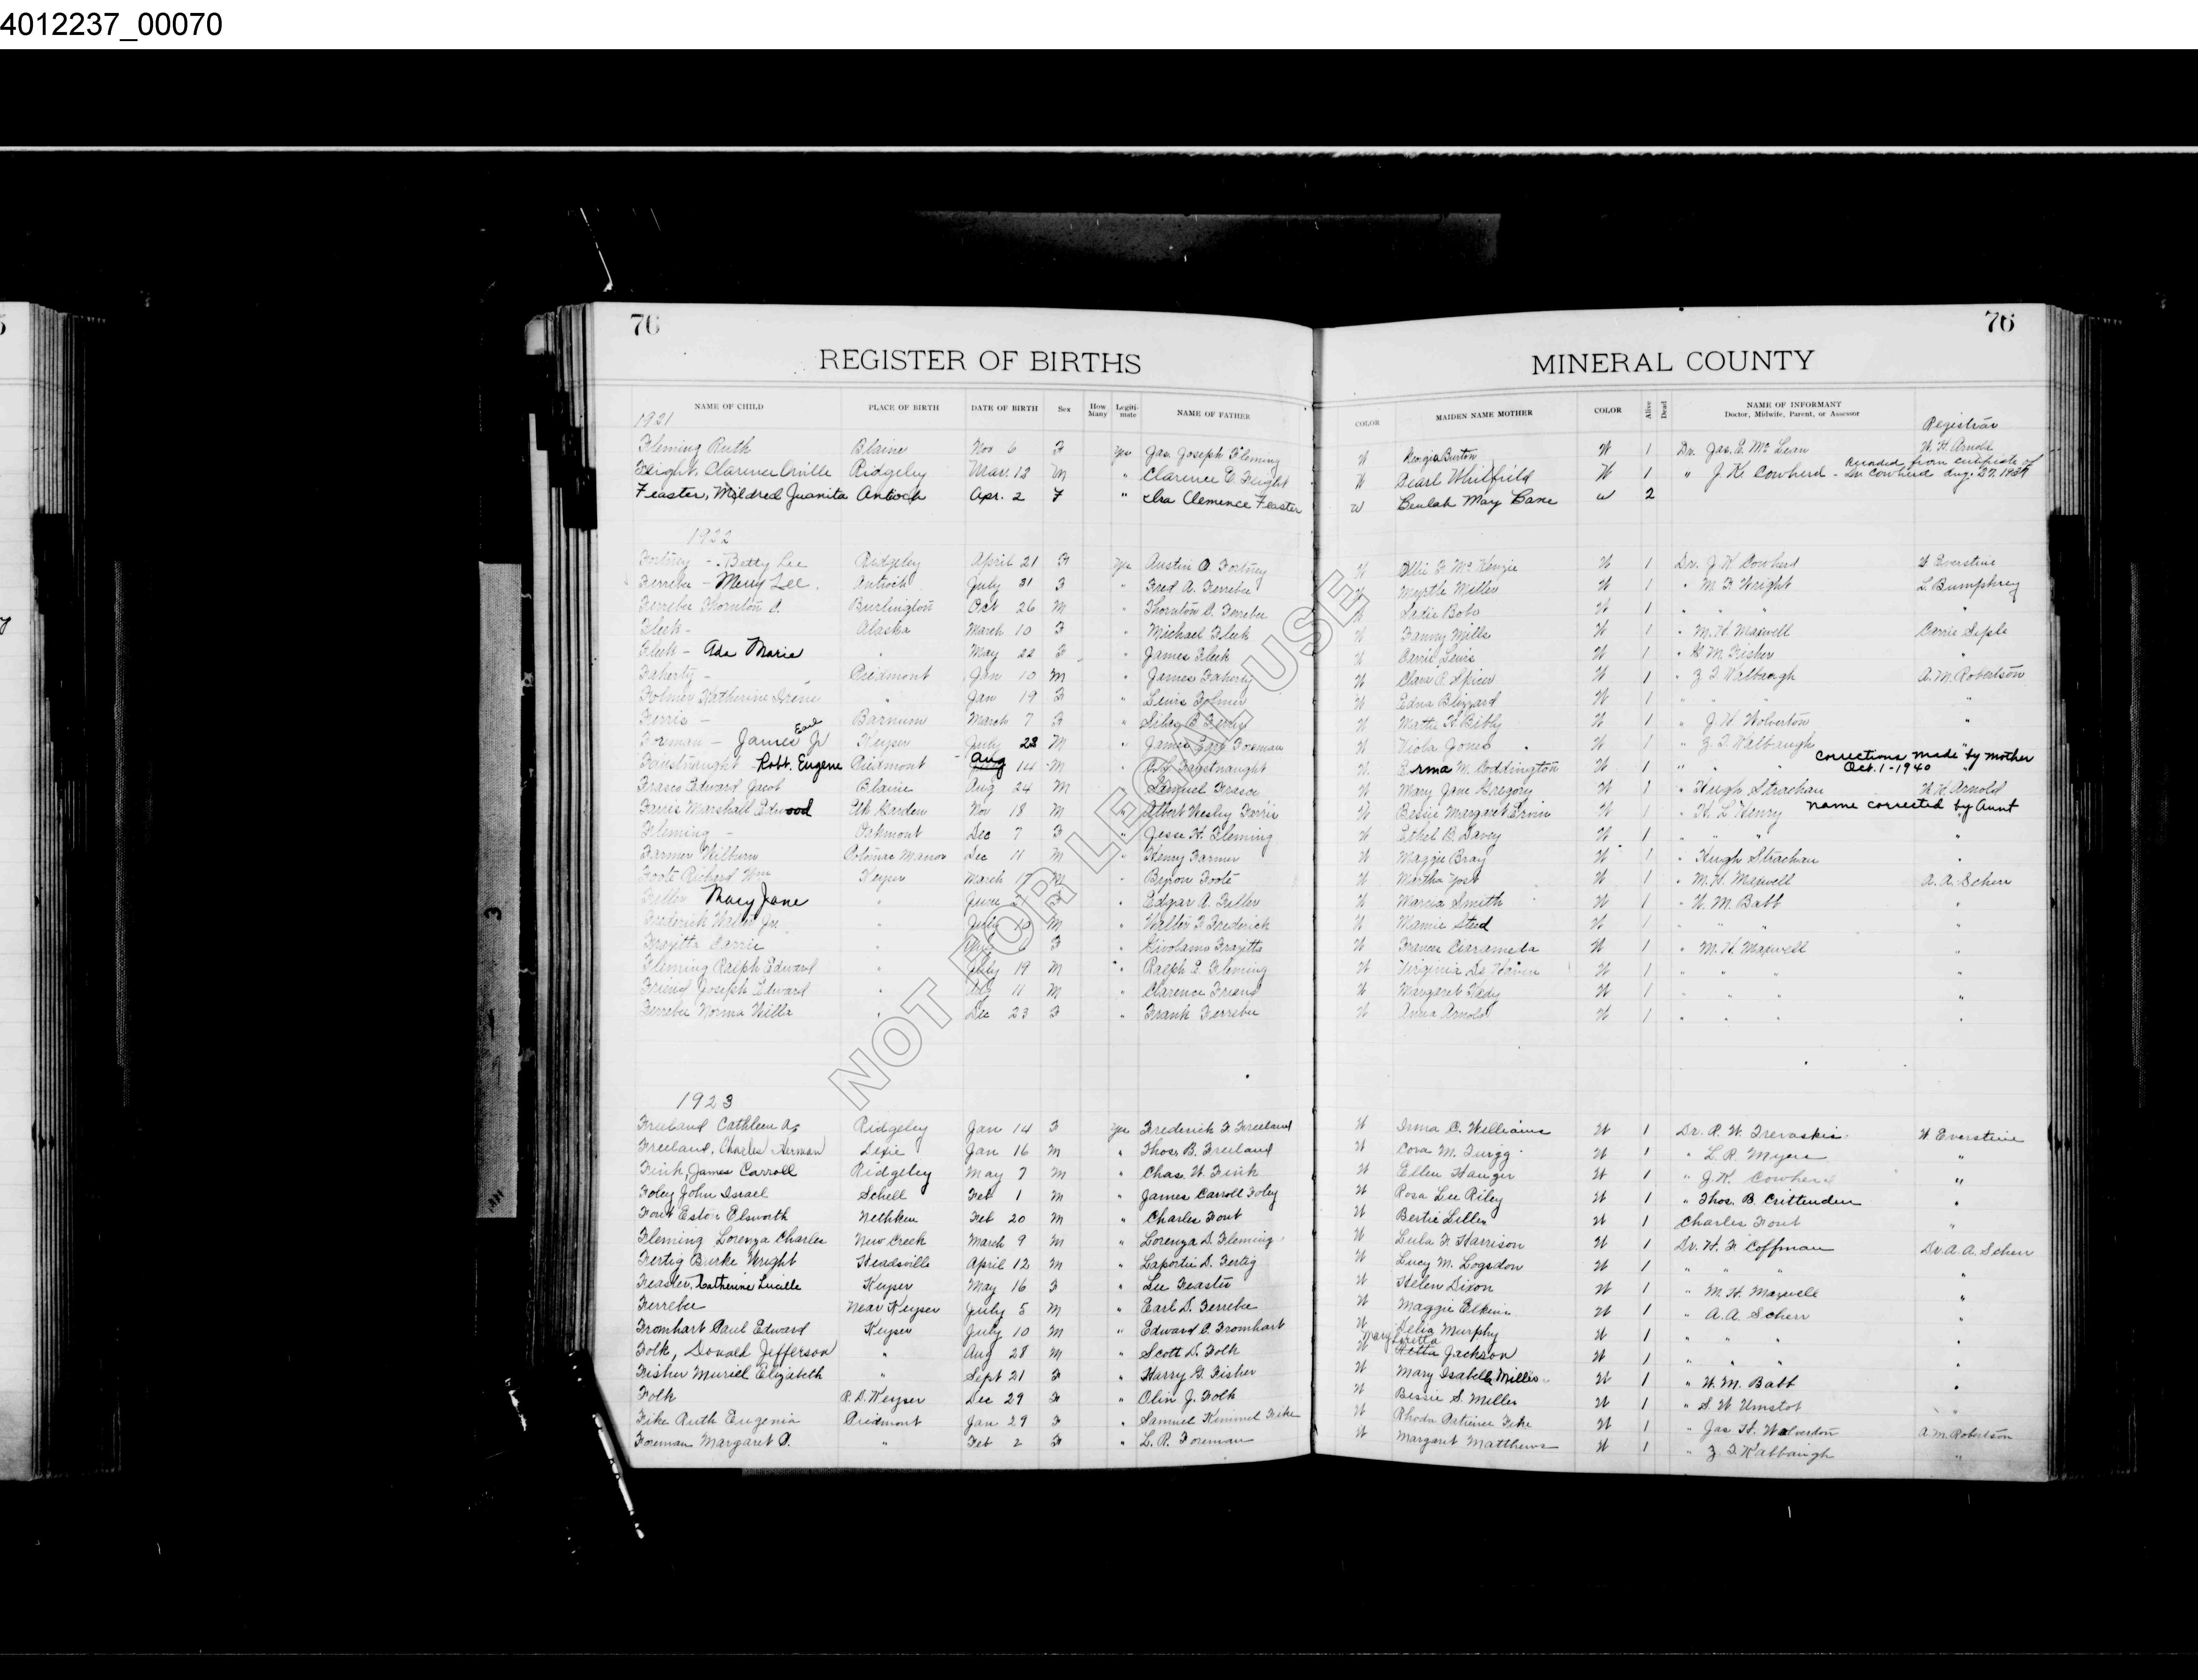 4012237_00070
76
76
REGISTER OF BIRTHS
MINERAL COUNTY
NAME OF CHILD PLACE OF BIRTH DATE OF BIRTH Sex How Many Legiti-mate NAME OF FATHER COLOR MAIDEN NAME MOTHER COLOR Alive Dead NAME OF INFORMANT Doctor, Midwife, Parent, or Assessor Registrar
1921
Fleming Ruth Blaine Nov 6 F Yes Jas. Joseph Fleming W Georgia Burton W 1 Dr. Jas. E. McLean W. H. Arnold
Feight, Clarence Orville Ridgeley Mar. 12 M " Clarence E. Feight W Pearl Whitfield W 1 " J. K. Cowherd - Recorded from certificate of Dr Cowherd Aug. 27, 1937
Feaster, Mildred Juanita Antioch Apr. 2 F " Ira Clemence Feaster W Beulah May Bane W 2
1922
Fortney - Betty Lee Ridgeley April 21 F Yes Austin O Fortney W Ollie F McKenzie W 1 Dr. J. K Cowherd W Everstine
Ferrebee - Merry Lee Antioch July 31 F " Fred A. Ferrebee W Myrtle Miller W 1 " M. F. Wright L. Bumphrey
Ferrebee Thornton C. Burlington Oct 26 M " Thornton C. Ferrebee W Sadie Bobo W 1 " " " "
Fleek - Alaska March 10 F " Michael Fleek W Fanny Mills W 1 " M. H. Maxwell Carrie Siple
Fleek - Ada Marie " May 22 F " James Fleek W Carrie Lewis W 1 " W M. Fisher "
Faherty - Piedmont Jan 10 M " James Faherty W Clara R. Spicer W 1 " Z T Kalbaugh A. M. Robertson
Folmer Katherine Irene " Jan 19 F " Lewis Folmer W Edna Blizzard W 1 " " " "
Ferris - Barnum March 7 F " Ferris W Mattie W 1 " J. H. Wolverton "
Foreman - James Earl Jr Keyser July 23 M " James Earl Foreman W Viola Jones W 1 " Z. T. Kalbaugh "
Faustnaught Robt. Eugene Piedmont Aug 14 M " Faustnaught W Erma M. Coddington W 1 " " Corrections made by mother Oct. 1-1940
Frasco Edward Jacob Blaine Aug 24 M " Samuel Frasco W Mary Jane Gregory W 1 " Hugh Strachan W. H. Arnold
Farris Marshall Edwood Elk Garden Nov 18 M " Albert Wesley Farris W Bessie Margaret Ervin W 1 " H. L Henry name corrected by Aunt
Fleming - Oakmont Dec 7 F " Jesse H. Fleming W Ethel B. Davey W 1 " " " "
Farmer Wilburn Potomac Manor Dec 11 M " Henry Farmer W Maggie Bray W 1 " Hugh Strachan "
Foote Richard Wm Keyser March 17 M " Byron Foote W Martha Yost W 1 " M. H. Maxwell A. A. Scherr
Feller Mary Jane " June F " Edgar A. Feller W Marcia Smith W 1 " W. M. Babb "
Frederick Walter Jr. " July 10 M " Walter F Frederick W Mamie Steed W 1 " " " "
Frazitta Carrie " F " Frazitta W Frances Ciarameda W 1 " M. H. Maxwell "
Fleming Ralph Edward " July 19 M " Ralph E. Fleming W Virginia De Haven W 1 " " " "
Friend Joseph Edward " 11 M " Clarence Friend W Margaret Kady W 1 " " " "
Ferrebee Norma Willa " Dec 23 F " Frank Ferrebee W Anna Arnold W 1 " " " "
1923
Freeland Cathleen A. Ridgeley Jan 14 F Yes Frederick F. Freeland W Irma C. Williams W 1 Dr. R. W. Trevaskis W Everstine
Freeland, Charles Herman Dixie Jan 16 M " Thos. B. Freeland W Cora M. Twigg W 1 " L. R. Myers "
Fink, James Carroll Ridgeley May 7 M " Chas. W. Fink W Ellen Hanger W 1 " J. K. Cowherd "
Foley John Israel Schell Feb 1 M " James Carroll Foley W Rosa Lee Riley W 1 " Thos. B. Crittenden "
Fout Ester Elsworth Nethken Feb 20 M " Charles Fout W Bertie Liller W 1 Charles Fout "
Fleming Lorenza Charles New Creek March 9 M " Lorenza D. Fleming W Lula F. Harrison W 1 Dr. W. F. Coffman Dr. A. A. Scherr
Fertig Burke Wright Headsville April 12 M " Laportie D. Fertig W Lucy M. Logsdon W 1 " " " "
Feaster, Catherine Lucille Keyser May 16 F " Lee Feaster W Helen Dixon W 1 " M. H. Maxwell "
Ferrebee Near Keyser July 5 M " Earl D. Ferrebee W Maggie Elkins W 1 " A. A. Scherr "
Fromhart Paul Edward Keyser July 10 M " Edward C. Fromhart W Delia Murphy W 1 " " " "
Folk, Donald Jefferson " Aug 28 M " Scott D. Folk W Mary Loretta Hetta Jackson W 1 " " " "
Fisher Muriel Elizabeth " Sept 21 F " Harry G. Fisher W Mary Isabelle Millis W 1 " W. M. Babb "
Folk R. D. Keyser Dec 29 F " Olin J. Folk W Bessie S. Miller W 1 " S. W Umstot "
Fike Ruth Eugenia Piedmont Jan 29 F " Samuel Kimmel Fike W Rhoda Patience Fike W 1 " Jas H. Wolverton A. M. Robertson
Foreman Margaret P. " Feb 2 F " L. R. Foreman W Margaret Matthews W 1 " Z T Kalbaugh "
NOT FOR LEGAL USE
3